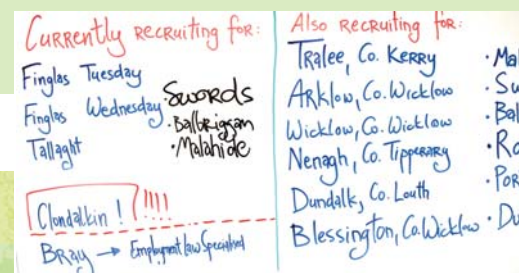 Currently recruiting for:
Finglas Tuesday
Finglas Wednesday
Tallaght
Swords
• Balbriggan
• Malahide
Clondalkin ! !!!!
Bray → Employment law Specialised
Also Recruiting for:
Tralee, Co. Kerry
Arklow, Co. Wicklow
Wicklow, Co. Wicklow
Nenagh, Co. Tipperary
Dundalk, Co. Louth
Blessington, Co. Wicklow